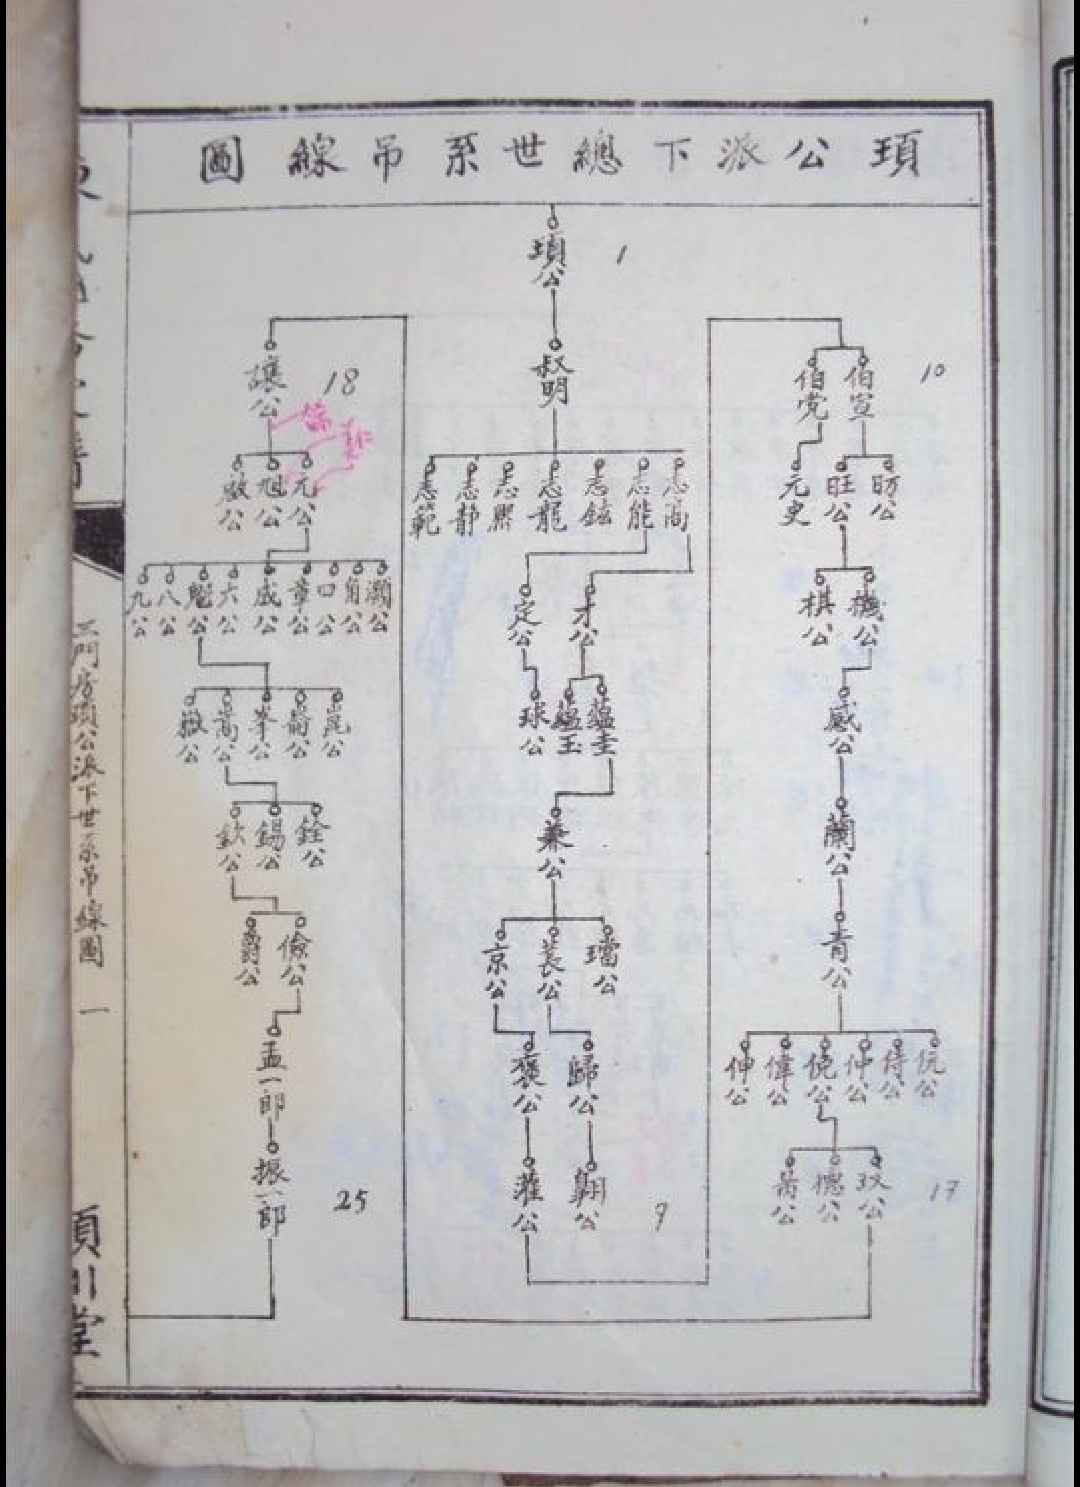 頊公派下總世系吊線圖
頊公
1
叔明
志高
志能
志鉉
志龍
志熙
志靜
志範
才公
定公
蘊圭
蘊玉
球公
兼公
璫公
萇公
京公
歸公
褒公
翱公
灌公
7
伯宣
伯党
10
昉公
旺公
元史
機公
棋公
感公
蘭公
青公
伉公
侍公
仲公
侻公
偉公
伸公
玫公
德公
萬公
17
讓公
18
元公
旭公
啟公
灝公
角公
口公
章公
威公
六公
魁公
八公
九公
昆公
峯公
嵩公
銓公
錫公
欽公
儉公
爵公
孟一郎
振一郎
25
三門房頊公派下世系吊線圖
一
潁川堂